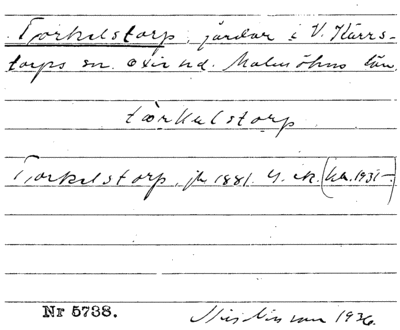 Torkelstorp, gårdar i V. Kärrs-
torps sn. Oxie hd. Malmöhus län.
tòrkəlstorp
Torkelstorp, jb 1881. G. sk. (ka. 1931-.)
Nr 5738.
Nilsson 1936.